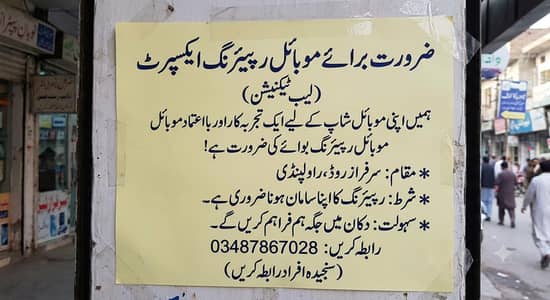 ضرورت برائے موبائل رپیئرنگ ایکسپرٹ
(لیب ٹیکنیشن)
ہمیں اپنی موبائل شاپ کے لیے ایک تجربہ کار اور بااعتماد موبائل
موبائل رپیئرنگ بوائے کی ضرورت ہے!
* مقام: سرفراز روڈ، راولپنڈی
* شرط: رپیئرنگ کا اپنا سامان ہونا ضروری ہے۔
* سہولت: دکان میں جگہ ہم فراہم کریں گے۔
رابطہ کریں: 03487867028
(سنجیدہ افراد رابطہ کریں)